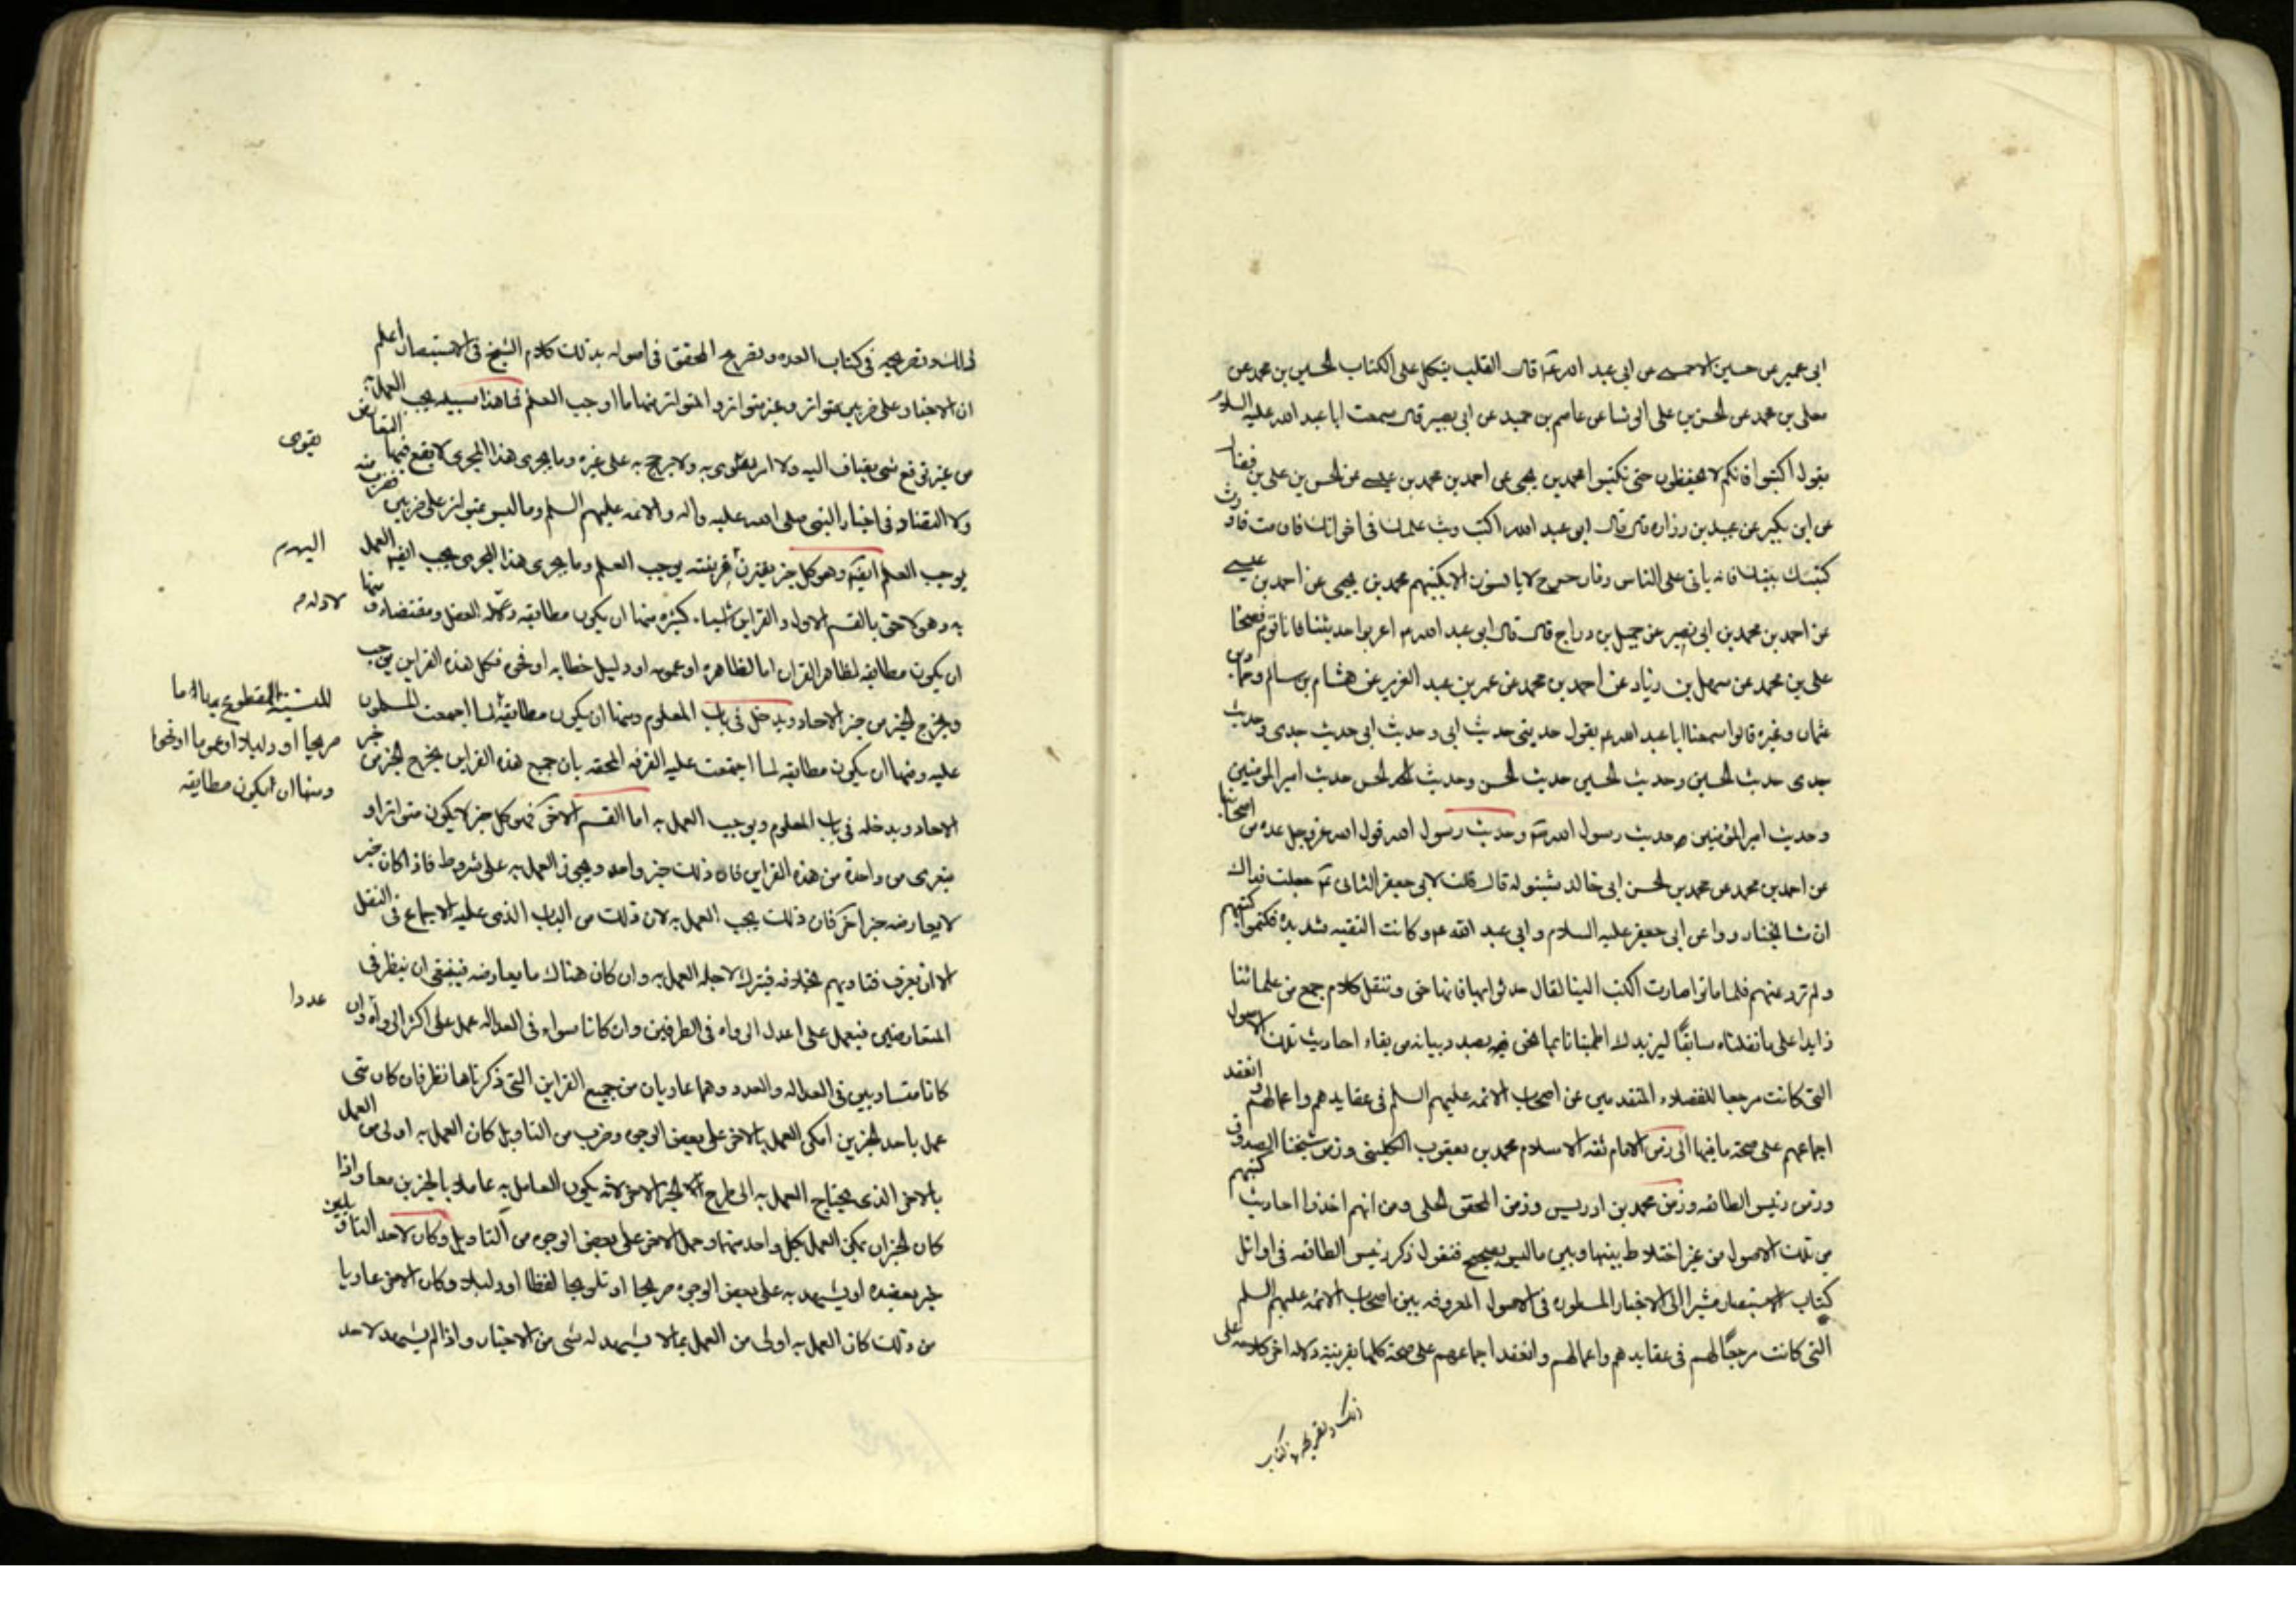 ابى عمير عن حسين الاحمسى عن ابى عبد الله ع قال القلب يتكل على الكتاب الحسين بن محمد عن
معلى بن محمد عن الحسن بن على الوشا عن عاصم بن حميد عن ابى بصير قال سمعت ابا عبد الله عليه السلام
يقول اكتبوا فانكم لا تحفظون حتى تكتبوا محمد بن يحيى عن احمد بن محمد بن عيسى عن الحسن بن على بن فضال
عن ابن بكير عن عبيد بن زراره قال قال ابو عبد الله اكتب وبث علمك فى اخوانك فان مت فاورث
كتبك بنيك فانه ياتى على الناس زمان هرج لا يانسون الا بكتبهم محمد بن يحيى عن احمد بن عيسى
عن احمد بن محمد بن ابى نصير عن جميل بن دراج قال قال ابو عبد الله ع اعربوا حديثنا فانا قوم فصحا
على بن محمد عن سهل بن زياد عن احمد بن محمد عن عمر بن عبد العزيز عن هشام بن سالم وحماد بن
عثمان وغيره قالوا سمعنا ابا عبد الله ع يقول حديثى حديث ابى وحديث ابى حديث جدى وحديث
جدى حديث الحسين وحديث الحسين حديث الحسن وحديث الحسن حديث امير المومنين
وحديث امير المؤمنين حديث رسول الله ص وحديث رسول الله قول الله عز وجل عده من اصحابنا
عن احمد بن محمد عن محمد بن الحسن ابى خالد شينوله قال قلت لابى جعفر الثانى ع جعلت فداك
ان مشايخنا رووا عن ابى جعفر عليه السلام وابى عبد الله ع وكانت التقيه شديده فكتموا كتبهم
ولم ترو عنهم فلما ماتوا صارت الكتب الينا فقال حدثوا بها فانها حق وننقل كلام جمع من علمائنا
زايدا على ما نقلناه سابقًا ليزيدك اطمينانا بما نحن بصدد بيانه من بقاء احاديث تلك الاصول
التى كانت مرجعا للفضلاء المتقدمين عن اصحاب الائمه عليهم السلم فى عقايدهم واعمالهم وانعقد
اجماعهم على صحة ما فيها الى زمن الامام ثقه الاسلام محمد بن يعقوب الكلينى وزمن شيخنا الصدوق
وزمن رئيس الطائفه وزمن محمد بن ادريس وزمن المحقق الحلى ومن انهم اخذوا احاديث كتبهم
من تلك الاصول من غير اختلاط بينها وبين ما ليس بصحيح فنقول ذكر رئيس الطائفه فى اوائل
كتاب الاستبصار مشيرا الى الاخبار المسطوره فى الاصول المعروفه بين اصحاب الائمه عليهم السلم
التى كانت مرجعًا لهم فى عقايدهم واعمالهم وانعقد اجماعهم على صحة كلها بقرينة دلاله اخر كلامه على
ذلك وتصريحه فى كتاب
ذلك وتصريحه فى كتاب العده وتصريح المحقق فى اصوله بذلك كلام الشيخ فى الاستبصار اعلم
ان الاخبار على ضربين متواتر وغير متواتر والمتواتر منها ما اوجب العلم فما هذا سبيله يجب العمل به
من غير توقع شى يضاف اليه ولا امر يقوى به ولا يرجح به على غيره وما يجرى هذا المجرى لا يقع فيها التعارض
يقوى
ولا التضاد فى اخبار النبى صلى الله عليه واله والائمه عليهم السلم وما ليس بمتواتر على ضربين فضرب منه
يوجب العلم ايضا وهو كل خبر يقترن قرينته يوجب العلم وما يجرى هذا المجرى يجب ايضا العمل
اليه م
به وهو لاحق بالقسم الاول والقراين اشياء كثيره منها ان يكون مطابقه لادله العقل ومقتضاه ومنها
لادله م
ان يكون مطابقه لظاهر القران اما لظاهره او عمومه او دليل خطابه او فحوى فكل هذه القراين يوجب
ويخرج الخبر من خبر الاحاد ويدخل فى باب المعلوم ومنها ان يكون مطابقه لما اجمعت المسلمون
للسنة المقطوع بها اما
صريحا او دليلا او عموما او فحوا
ومنها ان يكون مطابقه
عليه ومنها ان يكون مطابقه لما اجتمعت عليه الفرقه المحقه بان جميع هذه القراين يخرج الخبر من خبر
الاحاد ويدخله فى باب المعلوم ويوجب العمل به اما القسم الاخر فهو كل خبر لا يكون متواترا و
يتعرى من واحدة من هذه القراين فان ذلك خبر واحد ويجوز العمل به على شروط فاذا كان خبر
لا يعارضه خبر اخر فان ذلك يجب العمل به لان ذلك من الباب الذى عليه الاجماع فى النقل
الا ان يعرف فتاويهم بخلافه فيترك لاجله العمل به وان كان هناك ما يعارضه فينبغى ان ينظر فى
المتعارضين فيعمل على اعدل الرواه فى الطرفين وان كانا سواء فى العداله عمل على اكثر الرواة وان
عددا
كانا متساويين فى العداله والعدد وهما عاريان من جميع القراين التى ذكرناها نظر فان كان متى
عمل باحد الخبرين امكن العمل بالاخر على بعض الوجوه وضرب من التاويل كان العمل به اولى من العمل
بالاخر الذى يحتاج العمل به الى طرح الخبر الاخر لانه يكون العامل به عاملا بالخبرين معا واذا
كان الخبران يمكن العمل بكل واحد منهما وحمل الاخر على بعض الوجوه من التاويل وكان لاحد التاويلين
خبر يعضده او يشهد به على بعض الوجوه صريحا او تلويحا لفظا او دليلا وكان الاخر عاريا
من ذلك كان العمل به اولى من العمل بما لا يشهد له شى من الاخبار واذا لم يشهد لاحد